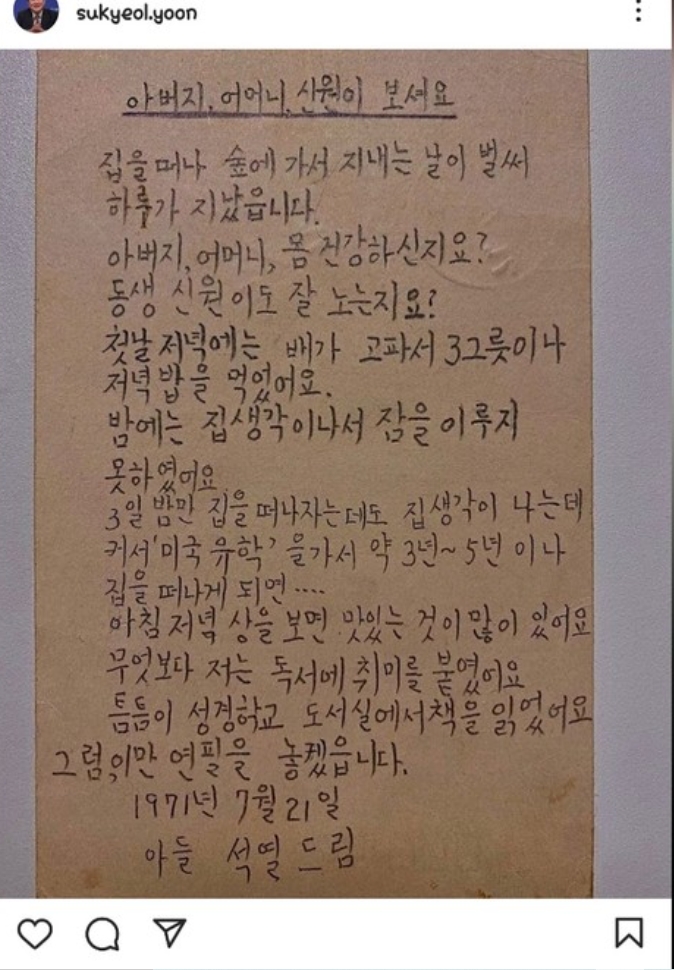 sukyeol.yoon
아버지, 어머니, 신원이 보셔요
집을 떠나 숲에 가서 지내는 날이 벌써
하루가 지났읍니다.
아버지, 어머니, 몸 건강하신지요?
동생 신원이도 잘 노는지요?
첫날 저녁에는 배가 고파서 3그릇이나
저녁밥을 먹었어요.
밤에는 집생각이나서 잠을 이루지
못하였어요
3일 밤만 집을 떠나자는데도 집생각이 나는데
커서 '미국 유학' 을가서 약 3년~5년 이나
집을 떠나게 되면····
아침 저녁 상을 보면 맛있는 것이 많이 있어요
무엇보다 저는 독서에 취미를 붙였어요
틈틈이 성경학교 도서실에서 책을 읽었어요
그럼, 이만 연필을 놓겠읍니다.
1971년 7월 21일
아들 석열 드림